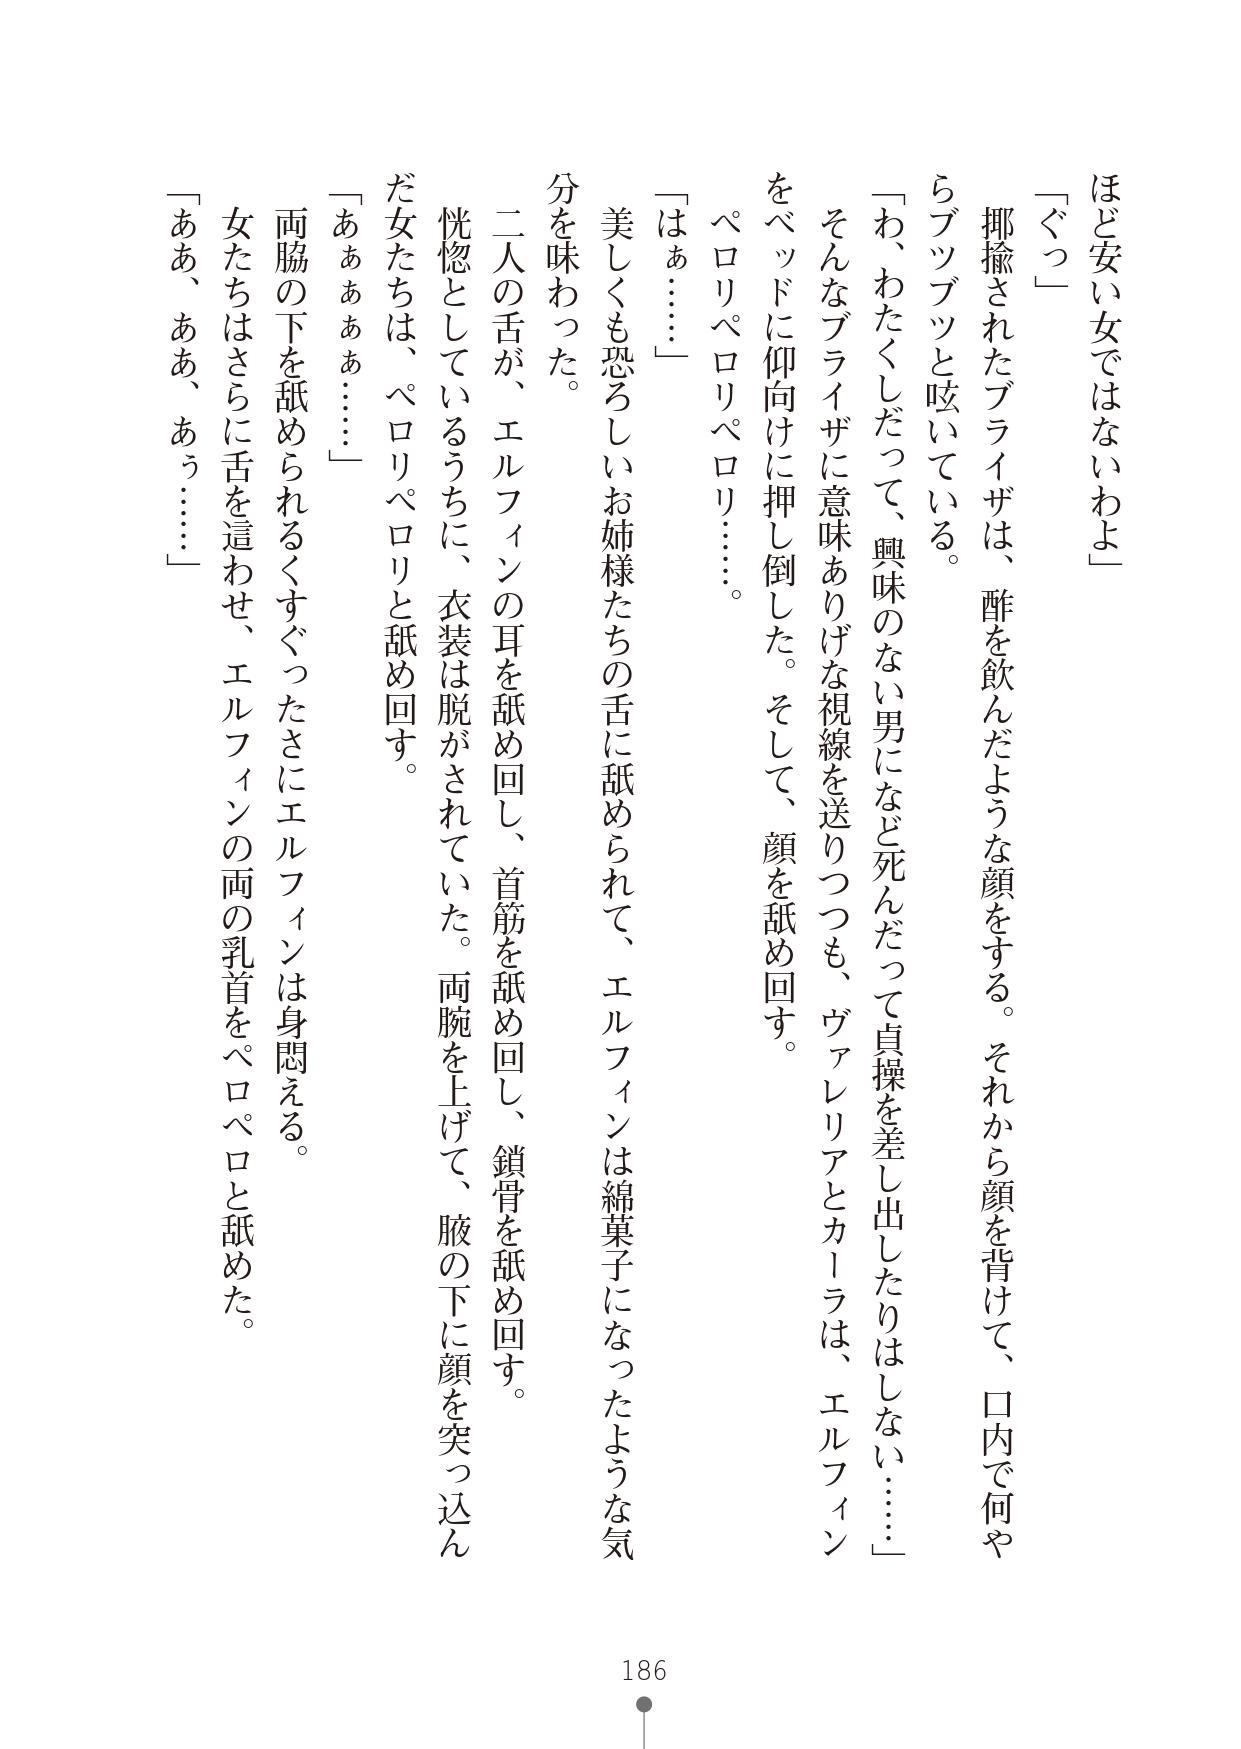 ほど安い女ではないわよ」
「ぐっ」
　揶揄されたブライザは、酢を飲んだような顔をする。それから顔を背けて、口内で何や
らブツブツと呟いている。
「わ、わたくしだって、興味のない男になど死んだって貞操を差し出したりはしない……」
　そんなブライザに意味ありげな視線を送りつつも、ヴァレリアとカーラは、エルフィン
をベッドに仰向けに押し倒した。そして、顔を舐め回す。
　ペロリペロリペロリ……。
「はぁ……」
　美しくも恐ろしいお姉様たちの舌に舐められて、エルフィンは綿菓子になったような気
分を味わった。
　二人の舌が、エルフィンの耳を舐め回し、首筋を舐め回し、鎖骨を舐め回す。
　恍惚としているうちに、衣装は脱がされていた。両腕を上げて、腋の下に顔を突っ込ん
だ女たちは、ペロリペロリと舐め回す。
「あぁぁぁぁ……」
　両脇の下を舐められるくすぐったさにエルフィンは身悶える。
　女たちはさらに舌を這わせ、エルフィンの両の乳首をペロペロと舐めた。
「ああ、ああ、あぅ……」
186